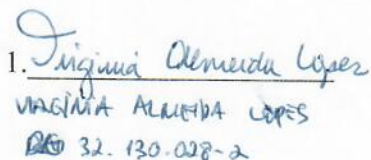 1. Virginia Almeida Lopes
VIRGÍNIA ALMEIDA LOPES
RG 32.130.028-2